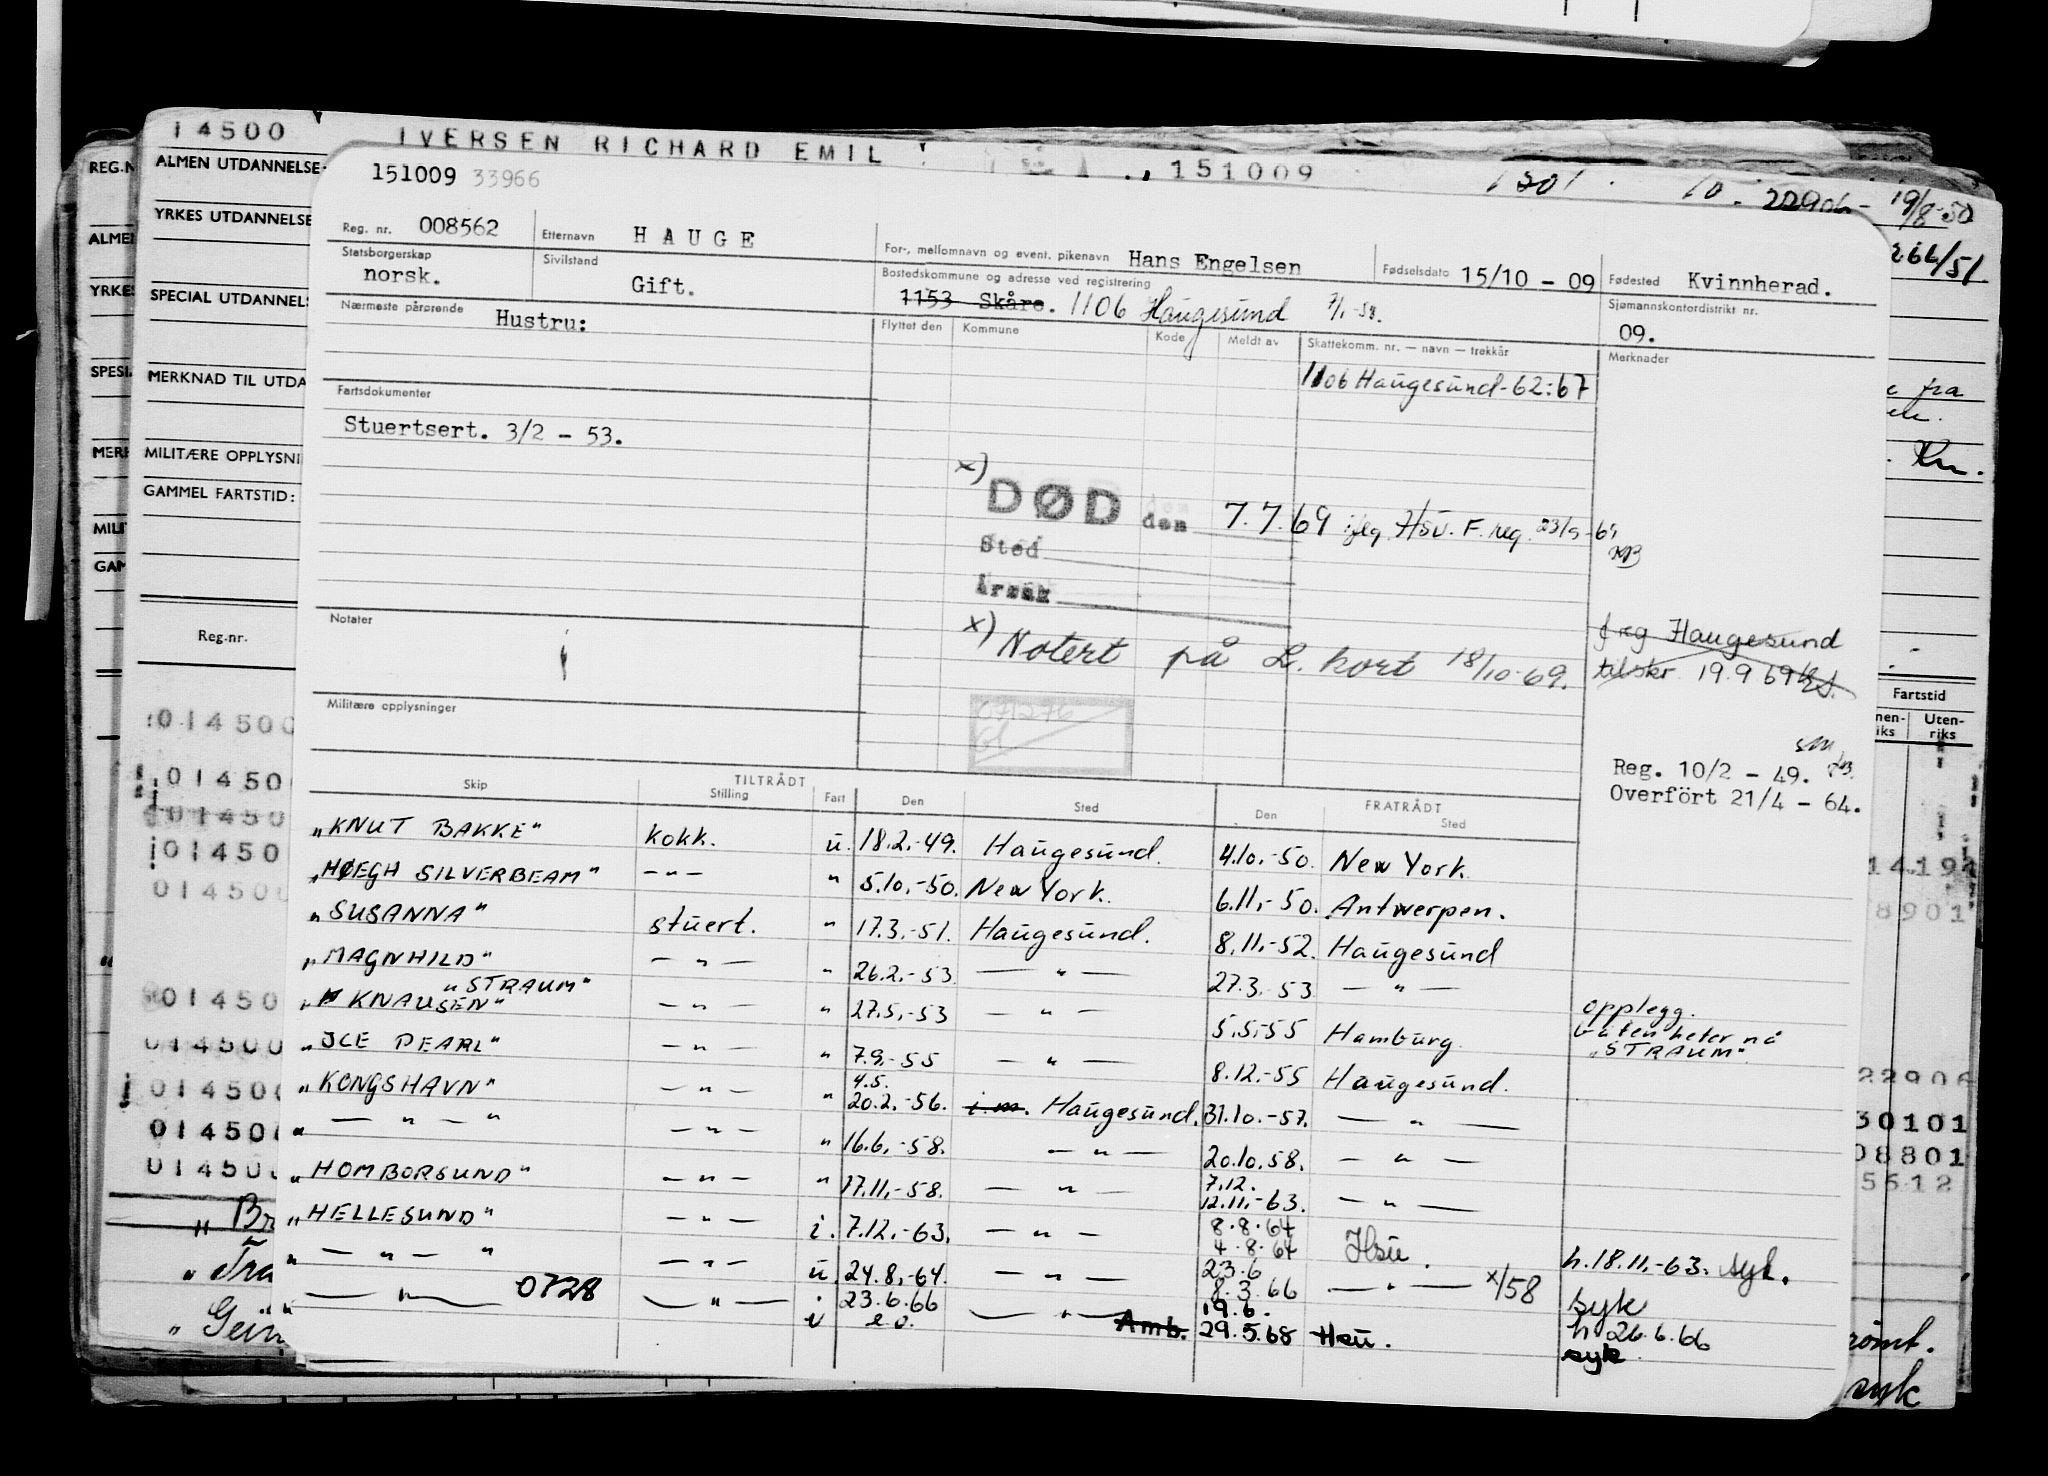 14500 IVERSEN RICHARD EMIL 151009
REG.N ALMEN UTDANNELSE: 151009 33966 22906 - 19/8-50
YRKES UTDANNELSE Reg. nr. 008562 Etternavn HAUGE For-, mellomnavn og event. pikenavn Hans Engelsen Fødselsdato 15/10 - 09 Fødested Kvinnherad. 266/51
ALMEN Statsborgerskap norsk. Sivilstand Gift. Bostedskommune og adresse ved registrering 1153 Skåre. 1106 Haugesund 7/1-58. Sjømannskontordistrikt nr. 09.
YRKES SPECIAL UTDANNELS Nærmeste pårørende Hustru: Flyttet den Kommune Kode Meldt av Skattekomm. nr. — navn — trekkår Merknader
1106 Haugesund-62:67
SPESI MERKNAD TIL UTDA Fartsdokumenter fra
Stuertsert. 3/2 - 53.
MERK MILITÆRE OPPLYSNI Kn.
GAMMEL FARTSTID:
x) DØD den 7.7.69 Hsv. F. reg. 23/9-69
MILIT Sted
GAM Årsak
Notater
Reg.nr. x) Notert på L. kort 18/10-69. freg Haugesund
tilskr 19.9 69
Fartstid
Militære opplysninger
Innen-riks Uten-riks
014500
Reg. 10/2 - 49.
Overfört 21/4 - 64.
Skip TILTRÅDT Stilling Fart Den Sted FRATRÅDT Den Sted
"KNUT BAKKE" kokk. u. 18.2.-49. Haugesund. 4.10.-50. New York.
"HØEGH SILVERBEAM" -"- " 5.10.-50. New York. 6.11.-50. Antwerpen.
"SUSANNA" stuert. " 17.3.-51. Haugesund. 8.11.-52. Haugesund
"MAGNHILD" - " - " 26.2.-53 — " — 27.3.-53 — " —
"STRAUM"
"KNAUSEN" - " - " 27.5.-53 - " - 5.5.-55 Hamburg opplegg.
båten heter nå
"STRAUM"
"ICE PEARL" - " - " 7.9.-55 — " — 8.12.-55 Haugesund.
4.5.
"KONGSHAVN" - " - " 20.2.-56. i.m. Haugesund. 31.10.-57. — " —
" — " — " - " - " 16.6.-58. — " — 20.10.58. — " —
7.12.
"HOMBORSUND" - " - " 17.11.-58. — " — 12.11.-63. — " —
8.8.64
"HELLESUND" - " - i. 7.12.-63. — " — 4.8.64 Hsu. h.18.11.-63. syk.
23.6
" — " — " - " - u. 24.8.-64. — " — 8.3.66 — " — x/58 syk
19.6.
— " — 0728 — " — i 23.6.66 — " — Amb. 29.5.68 Hsu. h 26.6.66
syk